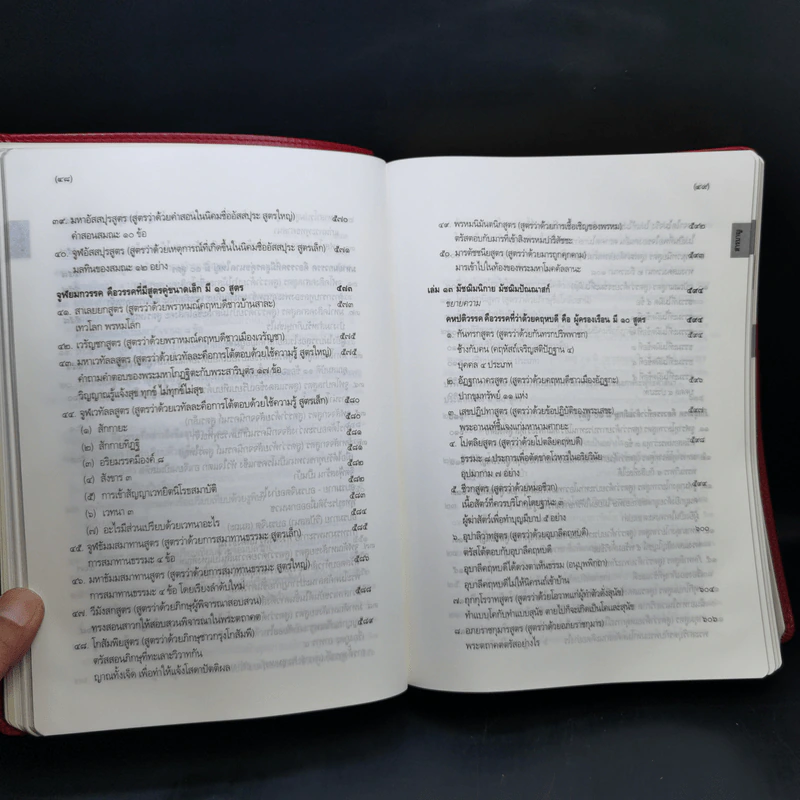 (๔๘)
๓๙. มหาอัสสปุรสูตร (สูตรว่าด้วยคำสอนในนิคมชื่ออัสสปุระ สูตรใหญ่) ๕๗๐
คำสอนสมณะ ๑๐ ข้อ
๔๐. จูฬอัสสปุรสูตร (สูตรว่าด้วยเหตุการณ์ที่เกิดขึ้นในนิคมชื่ออัสสปุระ สูตรเล็ก) ๕๗๑
มลทินของสมณะ ๑๒ อย่าง
จูฬยมกวรรค คือวรรคที่มีสูตรคู่ขนาดเล็ก มี ๑๐ สูตร ๕๗๓
๔๑. สาเลยยกสูตร (สูตรว่าด้วยพราหมณ์คฤหบดีชาวบ้านสาละ) ๕๗๓
เทวโลก พรหมโลก
๔๒. เวรัญชกสูตร (สูตรว่าด้วยพราหมณ์คฤหบดีชาวเมืองเวรัญชา) ๕๗๕
๔๓. มหาเวทัลลสูตร (สูตรว่าด้วยเวทัลละคือการโต้ตอบด้วยใช้ความรู้ สูตรใหญ่) ๕๗๕
คำถามคำตอบของพระมหาโกฏฐิตะกับพระสาริบุตร ๑๗ ข้อ
วิญญาณรู้แจ้งสุข ทุกข์ ไม่ทุกข์ไม่สุข
๔๔. จูฬเวทัลลสูตร (สูตรว่าด้วยเวทัลละคือการโต้ตอบด้วยใช้ความรู้ สูตรเล็ก) ๕๘๐
(๑) สักกายะ ๕๘๐
(๒) สักกายทิฏฐิ ๕๘๑
(๓) อริยมรรคมีองค์ ๘ ๕๘๑
(๔) สังขาร ๓ ๕๘๒
(๕) การเข้าสัญญาเวทยิตนิโรธสมาบัติ ๕๘๒
(๖) เวทนา ๓ ๕๘๓
(๗) อะไรมีส่วนเปรียบด้วยเวทนาอะไร ๕๘๔
๔๕. จูฬธัมมสมาทานสูตร (สูตรว่าด้วยการสมาทานธรรมะ สูตรเล็ก) ๕๘๕
การสมาทานธรรมะ ๔ ข้อ
๔๖. มหาธัมมสมาทานสูตร (สูตรว่าด้วยการสมาทานธรรมะ สูตรใหญ่) ๕๘๖
การสมาทานธรรมะ ๔ ข้อ โดยเรียงลำดับใหม่
๔๗. วีมังสกสูตร (สูตรว่าด้วยภิกษุผู้พิจารณาสอบสวน) ๕๘๘
ทรงสอนสาวกให้สอบสวนพิจารณาในพระตถาคต
๔๘. โกสัมพิยสูตร (สูตรว่าด้วยภิกษุชาวกรุงโกสัมพี) ๕๘๙
ตรัสสอนภิกษุที่ทะเลาะวิวาทกัน
ญาณทั้งเจ็ด เพื่อทำให้แจ้งโสดาปัตติผล
(๔๙)
สารบัญ
๔๙. พรหมนิมันตนิกสูตร (สูตรว่าด้วยการเชื้อเชิญของพรหม) ๕๙๒
ตรัสตอบกับมารที่เข้าสิงพรหมปาริสัชชะ
๕๐. มารตัชชนียสูตร (สูตรว่าด้วยมารถูกคุกคาม) ๕๙๓
มารเข้าไปในท้องของพระมหาโมคคัลลานะ
เล่ม ๑๓ มัชฌิมนิกาย มัชฌิมปัณณาสก์ ๕๙๔
ขยายความ
คหปติวรรค คือวรรคที่ว่าด้วยคฤหบดี คือ ผู้ครองเรือน มี ๑๐ สูตร ๕๙๕
๑. กันทรกสูตร (สูตรว่าด้วยกันทรกปริพพาชก) ๕๙๕
ช้างกับคน (คฤหัสถ์เจริญสติปัฏฐาน ๔)
บุคคล ๔ ประเภท
๒. อัฏฐกนาครสูตร (สูตรว่าด้วยคฤหบดีชาวเมืองอัฏฐกะ) ๕๙๖
ปากขุมทรัพย์ ๑๑ แห่ง
๓. เสขปฏิปทาสูตร (สูตรว่าด้วยข้อปฏิบัติของพระเสขะ) ๕๙๗
พระอานนท์ชี้แจงแก่มหานามศากยะ
๔. โปตลิยสูตร (สูตรว่าด้วยโปตลิยคฤหบดี) ๕๙๘
ธรรมะ ๘ ประการเพื่อตัดขาดโวหารในอริยวินัย
อุปมากาม ๗ อย่าง
๕. ชีวกสูตร (สูตรว่าด้วยหมอชีวก) ๕๙๙
เนื้อสัตว์ที่ควรบริโภคโดยฐานะ ๓
ผู้ฆ่าสัตว์เพื่อทำบุญมีบาป ๕ อย่าง
๖. อุปาลิวาทสูตร (สูตรว่าด้วยอุบาลีคฤหบดี) ๖๐๐
ตรัสโต้ตอบกับอุบาลีคฤหบดี
อุบาลีคฤหบดีได้ดวงตาเห็นธรรม (อนุบุพพิกถา)
อุบาลีคฤหบดีไม่ให้นิครนถ์เข้าบ้าน
๗. กุกกุโรวาทสูตร (สูตรว่าด้วยโอวาทแก่ผู้ทำตัวดั่งสุนัข) ๖๐๔
ทำแบบโคกับทำแบบสุนัข ตายไปก็จะเกิดเป็นโคและสุนัข
๘. อภยราชกุมารสูตร (สูตรว่าด้วยอภยราชกุมาร) ๖๐๖
พระตถาคตตรัสอย่างไร